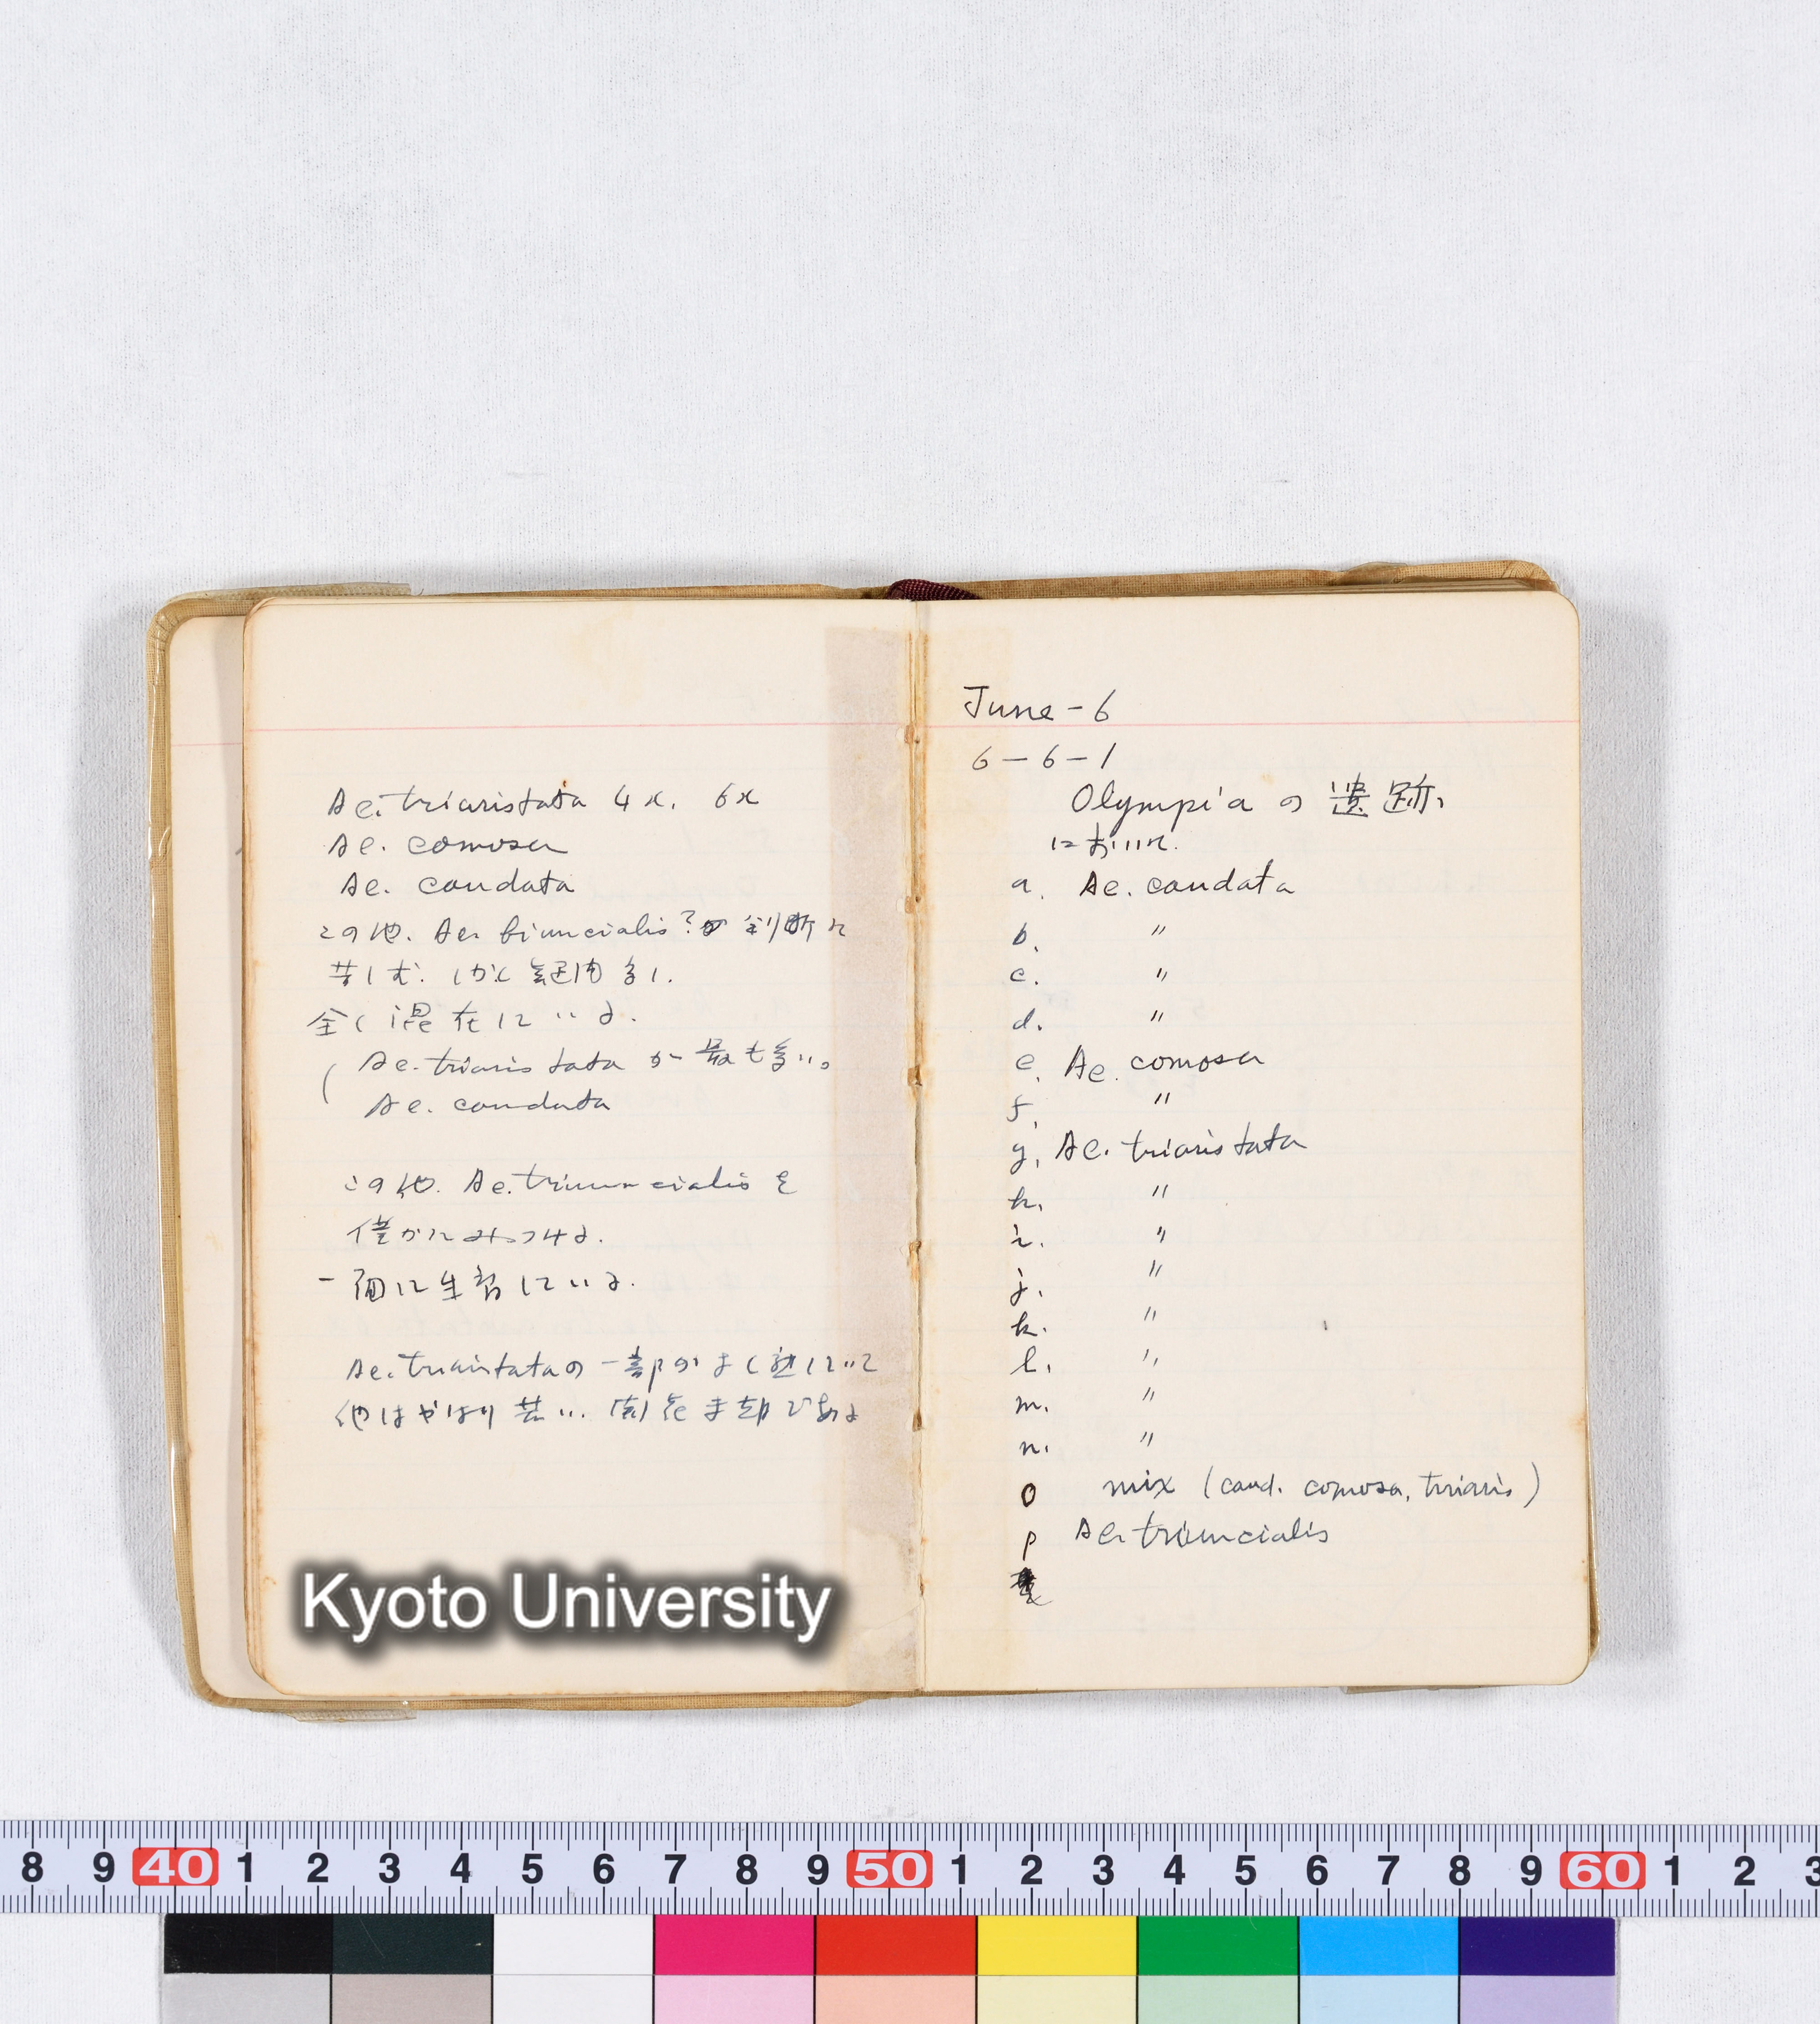 Ae. triaristata 4x. 6x
Ae. comosa
Ae. caudata
この他. Ae. biuncialis? 判断に
苦しむ. しかし 多し.
全く混在している.
( Ae. triaristata が最も多い。
Ae. caudata
この他. Ae. triuncialis を
僅かにみつける.
一面に生育している.
Ae. triaristataの一部がよく熟していて
他はやはり若い. 開花 である
Kyoto University
June - 6
6 - 6 - 1
Olympia の 遺跡
において.
a. Ae. caudata
b. 〃
c. 〃
d. 〃
e. Ae. comosa
f. 〃
g. Ae. triaristata
h. 〃
i. 〃
j. 〃
k. 〃
l. 〃
m. 〃
n. 〃
o mix (caud. comosa, triaris)
p Ae. triuncialis
8 9 40 1 2 3 4 5 6 7 8 9 50 1 2 3 4 5 6 7 8 9 60 1 2 3